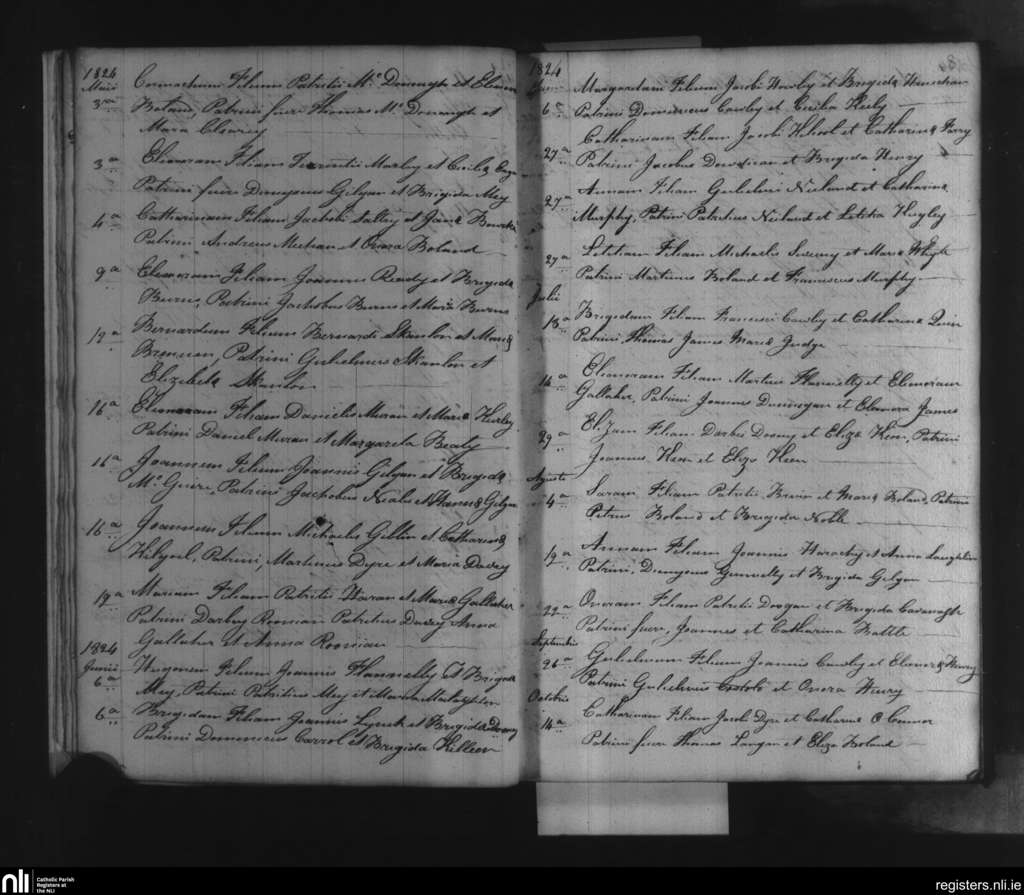 1824
Maii Cormacum Filium Patritii Mc Donough et Elenora
3a Boland, Patrini fuere Thomas Mc Donough et
Maria Clearey
3a Elenoram Filiam Terentii Marley et Cecilia
Patrini fuere Dionysius Gilgan et Brigida Mey
4a Catharinam Filiam Jacobi Talley et Jana Bourke
Patrini Andreas Meehan et Onora Boland
9a Elenoram Filiam Joannis Ready et Brigida
Burns, Patrini Jachobus Burns et Maria Burns
12a Bernardum Filium Bernardi Skanlon et Maria
Brenen, Patrini Gulielmus Skanlon et
Elizebeth Skanlon
16a Elenoram Filiam Danielis Muran et Maria Kerley
Patrini Daniel Muran et Margareta Beaty
16a Joannem Filium Joannis Gilgan et Brigida
Mc Guire, Patrini Jachobus Neale et Gilgan
16a Joannem Filium Michaelis Gillin et Catharina
Kilgool, Patrini, Martinus Dyre et Maria Davey
19a Mariam Filiam Patritii Haran et Maria Gallaher
Patrini Darley Roonian Patritius Davey Anna
Gallaher et Anna Roonian
1824
Junii Hugonem Filium Joannis Flannelly et Brigida
6a Mey, Patrini Patritius Mey et Maria
6a Brigidam Filiam Joannis Lynch et Brigida
Patrini Domenicus Carrol et Brigida Killeen
1824
Junii Margaretam Filiam Jacobi Hawley et Brigida
6a Patrini Domenicus Cawley et Cicilia
Catharinam Filiam Jacobi Kilcool et Catharina Parry
27a Patrini Jacobus Dowdican et Brigida Henry
Annam Filiam Gulielmi Neiland et Catharina
27a Murphy, Patrini Patritius Neiland et Letitia Hugley
27a Letitiam Filiam Michaelis Sweeny et Maria Whyte
Patrini Martinus Boland et Franciscus Murphy
Julii
18a Brigidam Filiam Francisci Cawley et Catharina Quin
Patrini, Thomas James Maria Judge
14a Elenoram Filiam Martini Flannelly et Elenoram
Gallaher, Patrini Joannes Dunnigan et Elenora James
29a Elizam Filiam Darbii Doony et Eliza Keen, Patrini
Joannes Keen et Eliza Keen
Augusti
4a Saram Filiam Patritii Brien et Maria Boland Patrini
Petrus Boland et Brigida Noble
19a Annam Filiam Joannis et Anna Laughlin
Patrini, Dionysius Gunnelly et Brigida Gilgan
22a Onoram Filiam Patritii Drogan et Brigida Cavanagh
Patrini fuere, Joannes et Catharina Battle
Septembris
26a Gulielmum Filium Joannis Cawley et Elenora Henry
Patrini Gulielmus Costolo et Onora Henry
Octobris
14a Catharinam Filiam Jacobi Dyre et Catharina O Connor
Patrini fuere Thomas Langan et Eliza Boland
nli Catholic Parish
Registers at
the NLI
registers.nli.ie